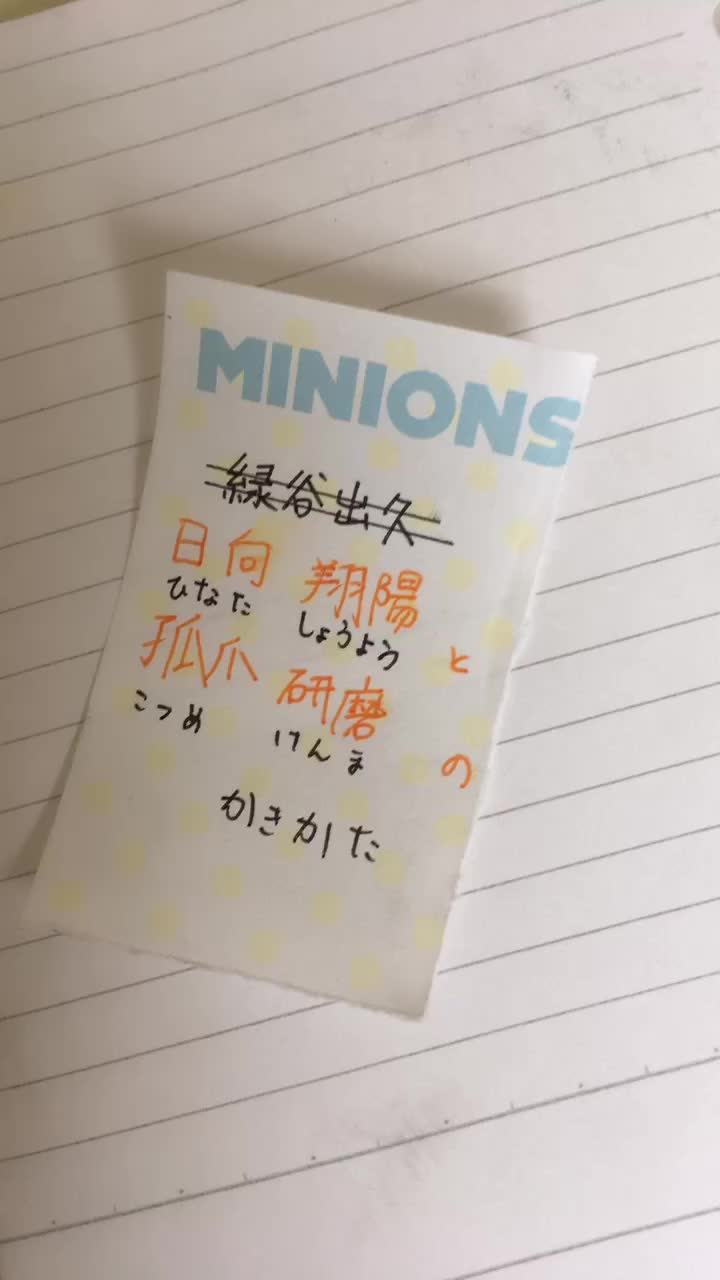 MINIONS
緑谷出久
日向 翔陽と
ひなた しょうよう
孤爪 研磨の
こづめ けんま
かきかた